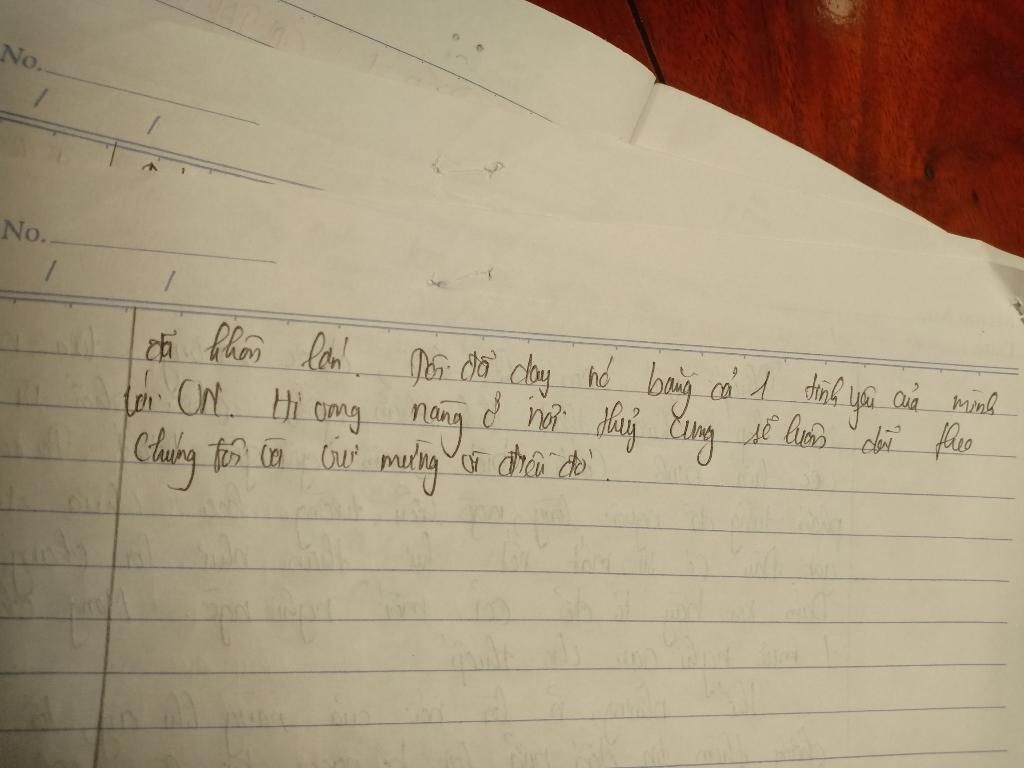 No.
/ /
No.
/ /
đã khôn lớn. Tôi đã dạy nó bằng cả 1 tình yêu của mình
với CN. Hi vọng nàng ở nơi thuỷ cung sẽ luôn dõi theo
Chúng tôi và vui mừng vì điều đó.